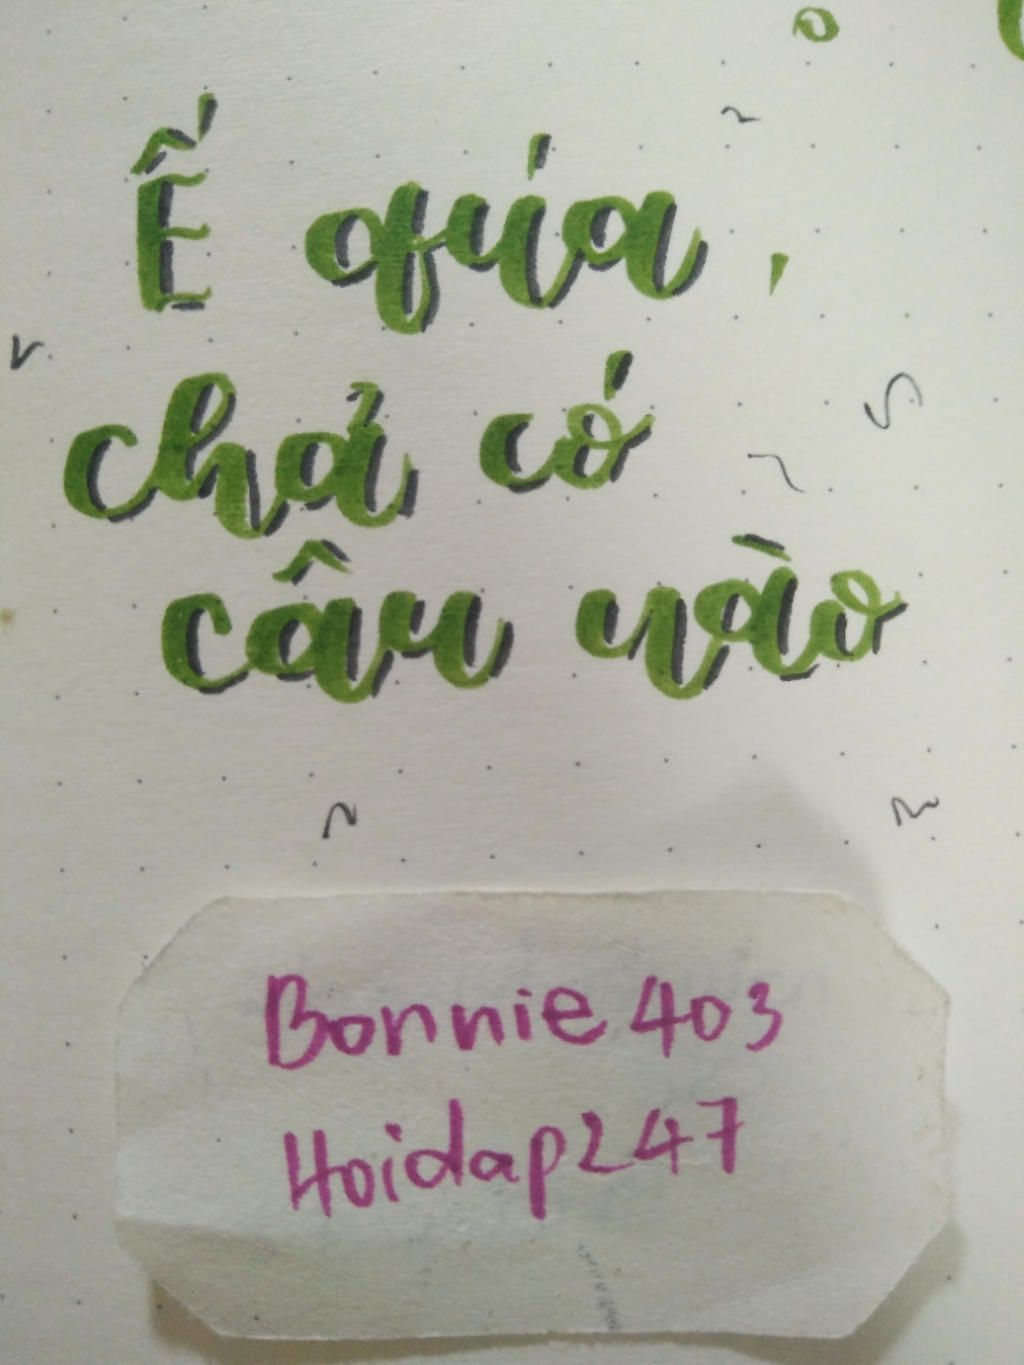 Ế qúa,
chả có
câu nào
Bonnie403
Hoidap247